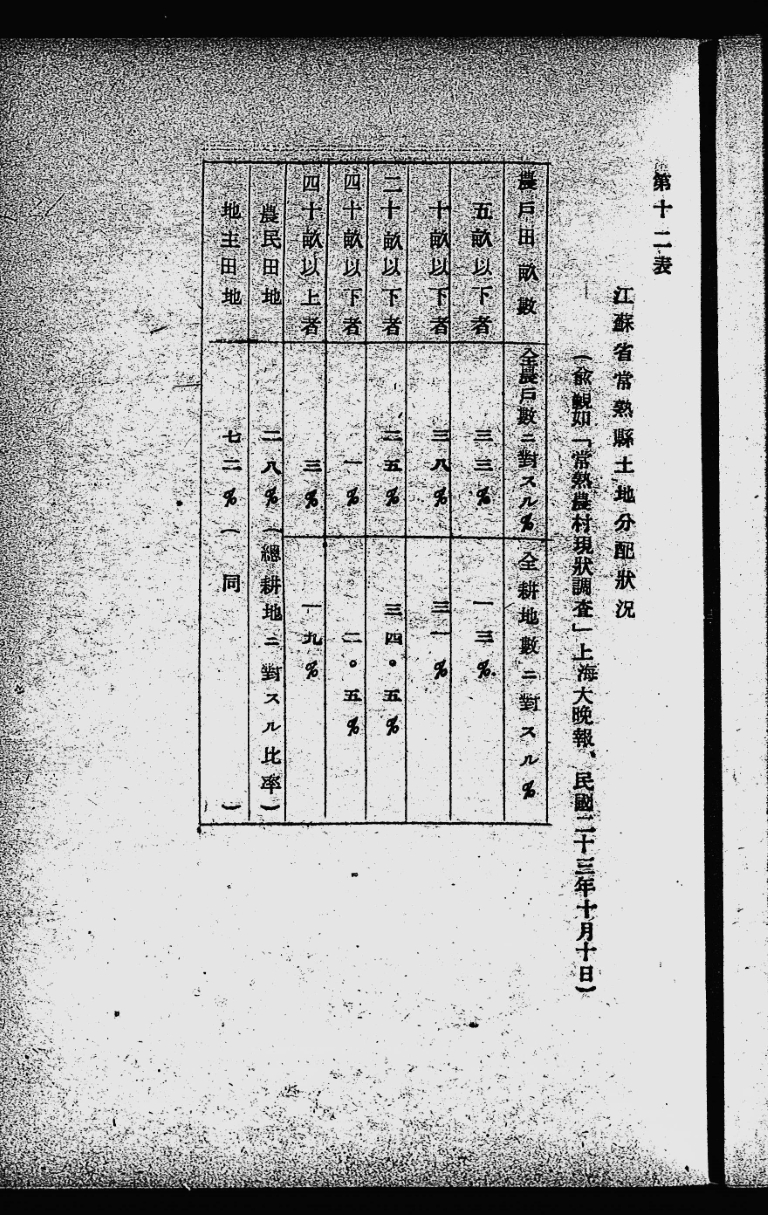 第十二表
江蘇省常熟縣土地分配狀況
(兪觀如「常熟農村現狀調査」上海大晚報、民國二十三年十月十日)
農戶田畝數 全農戶數ニ對スル% 全耕地數ニ對スル%
五畝以下者 三三% 一三%
十畝以下者 三八% 三一%
二十畝以下者 二五% 三四。五%
四十畝以下者 一% 二。五%
四十畝以上者 三% 一九%
農民田地 二八%(總耕地ニ對スル比率)
地主田地 七二%(同)